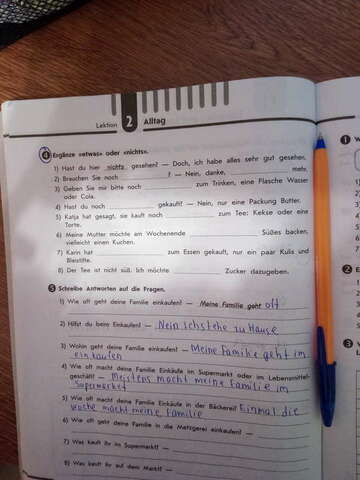 Lektion 2 Alltag
4 Ergänze «etwas» oder «nichts».
1) Hast du hier nichts gesehen? — Doch, ich habe alles sehr gut gesehen.
2) Brauchen Sie noch ? — Nein, danke, mehr.
3) Geben Sie mir bitte noch zum Trinken, eine Flasche Wasser
oder Cola.
4) Hast du noch gekauft? — Nein, nur eine Packung Butter.
5) Katja hat gesagt, sie kauft noch zum Tee: Kekse oder eine
Torte.
6) Meine Mutter möchte am Wochenende Süßes backen,
vielleicht einen Kuchen.
7) Karin hat zum Essen gekauft, nur ein paar Kulis und
Bleistifte.
8) Der Tee ist nicht süß. Ich möchte Zucker dazugeben.
5 Schreibe Antworten auf die Fragen.
1) Wie oft geht deine Familie einkaufen? — Meine Familie geht oft
2) Hilfst du beim Einkaufen? — Nein zu Hause
3) Wohin geht deine Familie einkaufen? — Meine Familie geht im
einkaufen
4) Wie oft macht deine Familie Einkäufe im Supermarkt oder im Lebensmittel-
geschäft? — Meistens macht meine Familie im
Supermarket
5) Wie oft macht deine Familie Einkäufe in der Bäckerei? Einmal die
woche macht meine Familie
6) Wie oft geht deine Familie in die Metzgerei einkaufen? —
7) Was kauft ihr im Supermarkt? —
8) Was kauft ihr auf dem Markt? —
1
2
3